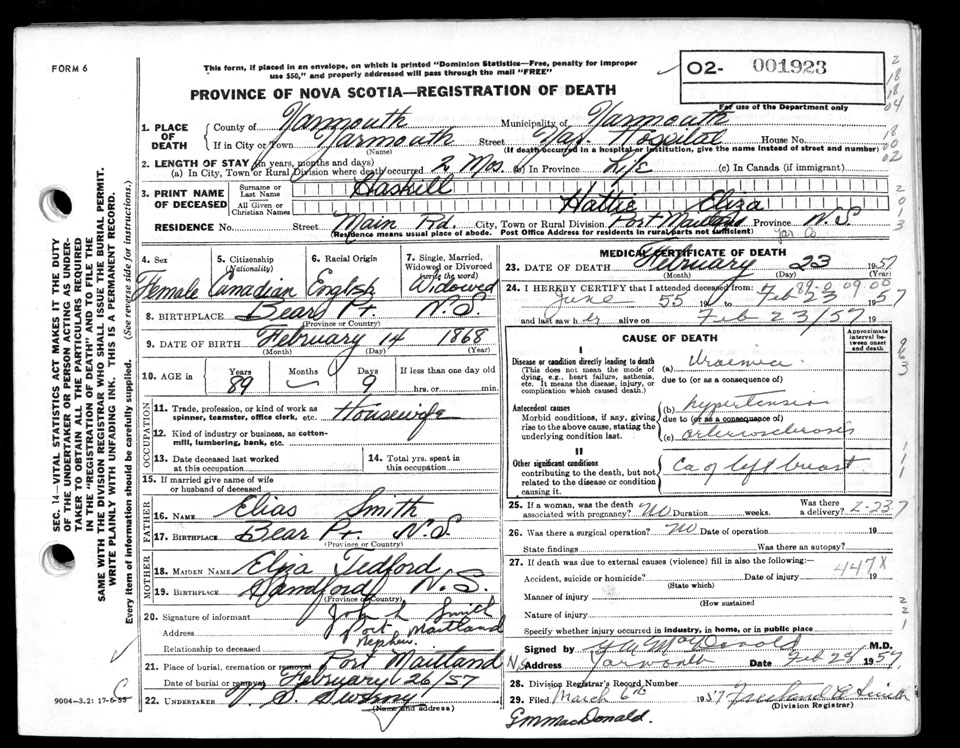 FORM 6
This form, if placed in an envelope, on which is printed "Dominion Statistics—Free, penalty for improper
use $50," and properly addressed will pass through the mail "FREE"
O2- 001923
For use of the Department only
PROVINCE OF NOVA SCOTIA—REGISTRATION OF DEATH
1. PLACE OF DEATH
County of Yarmouth Municipality of Yarmouth
If in City or Town Yarmouth Street Hospital House No.
(Name) (If death occurred in a hospital or institution, give the name instead of street and number)
2. LENGTH OF STAY (in years, months and days)
(a) In City, Town or Rural Division where death occurred 2 Mos. (b) In Province Life (c) In Canada (if immigrant)
3. PRINT NAME OF DECEASED
Surname or Last Name Haskell
All Given or Christian Names Hattie Eliza
RESIDENCE No. Street Main Rd. City, Town or Rural Division Port Maitland Province N.S.
(Residence means usual place of abode. Post Office Address for residents in rural parts not sufficient) Yar Co
4. Sex
5. Citizenship (Nationality)
6. Racial Origin
7. Single, Married, Widowed or Divorced (write the word)
Female Canadian English Widowed
8. BIRTHPLACE Bear Pt. N.S.
(Province or Country)
9. DATE OF BIRTH February 14 1868
(Month) (Day) (Year)
10. AGE in Years Months Days If less than one day old
89 9 hrs. or min.
OCCUPATION
11. Trade, profession, or kind of work as spinner, teamster, office clerk, etc. Housewife
12. Kind of industry or business, as cotton-mill, lumbering, bank, etc.
13. Date deceased last worked at this occupation
14. Total yrs. spent in this occupation
15. If married give name of wife or husband of deceased
FATHER
16. NAME Elias Smith
17. BIRTHPLACE Bear Pt. N.S.
(Province or Country)
MOTHER
18. MAIDEN NAME Eliza Tedford
19. BIRTHPLACE N.S.
(Province or Country)
20. Signature of informant John Smith
Address Port Maitland
Relationship to deceased Nephew
21. Place of burial, cremation or removal Port Maitland
Date of burial or removal February 26/57
22. UNDERTAKER V. S. Sweeny
(Name and address)
9004-3.2: 17-6-55
MEDICAL CERTIFICATE OF DEATH
23. DATE OF DEATH February 23 1957
(Month) (Day) (Year)
24. I HEREBY CERTIFY that I attended deceased from:
June 55 to Feb 23 1957
and last saw her alive on Feb 23/57 19
CAUSE OF DEATH
Approximate interval between onset and death
I
Disease or condition directly leading to death
(This does not mean the mode of dying, e.g., heart failure, asthenia, etc. It means the disease, injury, or complication which caused death.)
(a) Uraemia
due to (or as a consequence of)
Antecedent causes
Morbid conditions, if any, giving rise to the above cause, stating the underlying condition last.
(b) hypertension
due to (or as a consequence of)
(c) arteriosclerosis
II
Other significant conditions
contributing to the death, but not related to the disease or condition causing it.
Ca of left breast
25. If a woman, was the death associated with pregnancy? No Duration weeks. Was there a delivery?
2-23-7
26. Was there a surgical operation? No Date of operation 19
State findings Was there an autopsy?
27. If death was due to external causes (violence) fill in also the following:—
447X
Accident, suicide or homicide? Date of injury 19
(State which)
Manner of injury
(How sustained
Nature of injury
Specify whether injury occurred in industry, in home, or in public place
Signed by MacDonald M.D.
Address Yarmouth N.S. Date Feb 25/ 1957.
28. Division Registrar's Record Number
29. Filed March 6th 1957 Freeland A Smith
(Division Registrar)
GMMacDonald.
SEC. 14—VITAL STATISTICS ACT MAKES IT THE DUTY
OF THE UNDERTAKER OR PERSON ACTING AS UNDER-
TAKER TO OBTAIN ALL THE PARTICULARS REQUIRED
IN THE "REGISTRATION OF DEATH" AND TO FILE THE
SAME WITH THE DIVISION REGISTRAR WHO SHALL ISSUE THE BURIAL PERMIT.
WRITE PLAINLY WITH UNFADING INK. THIS IS A PERMANENT RECORD.
Every item of Information should be carefully supplied. (See reverse side for instructions.)